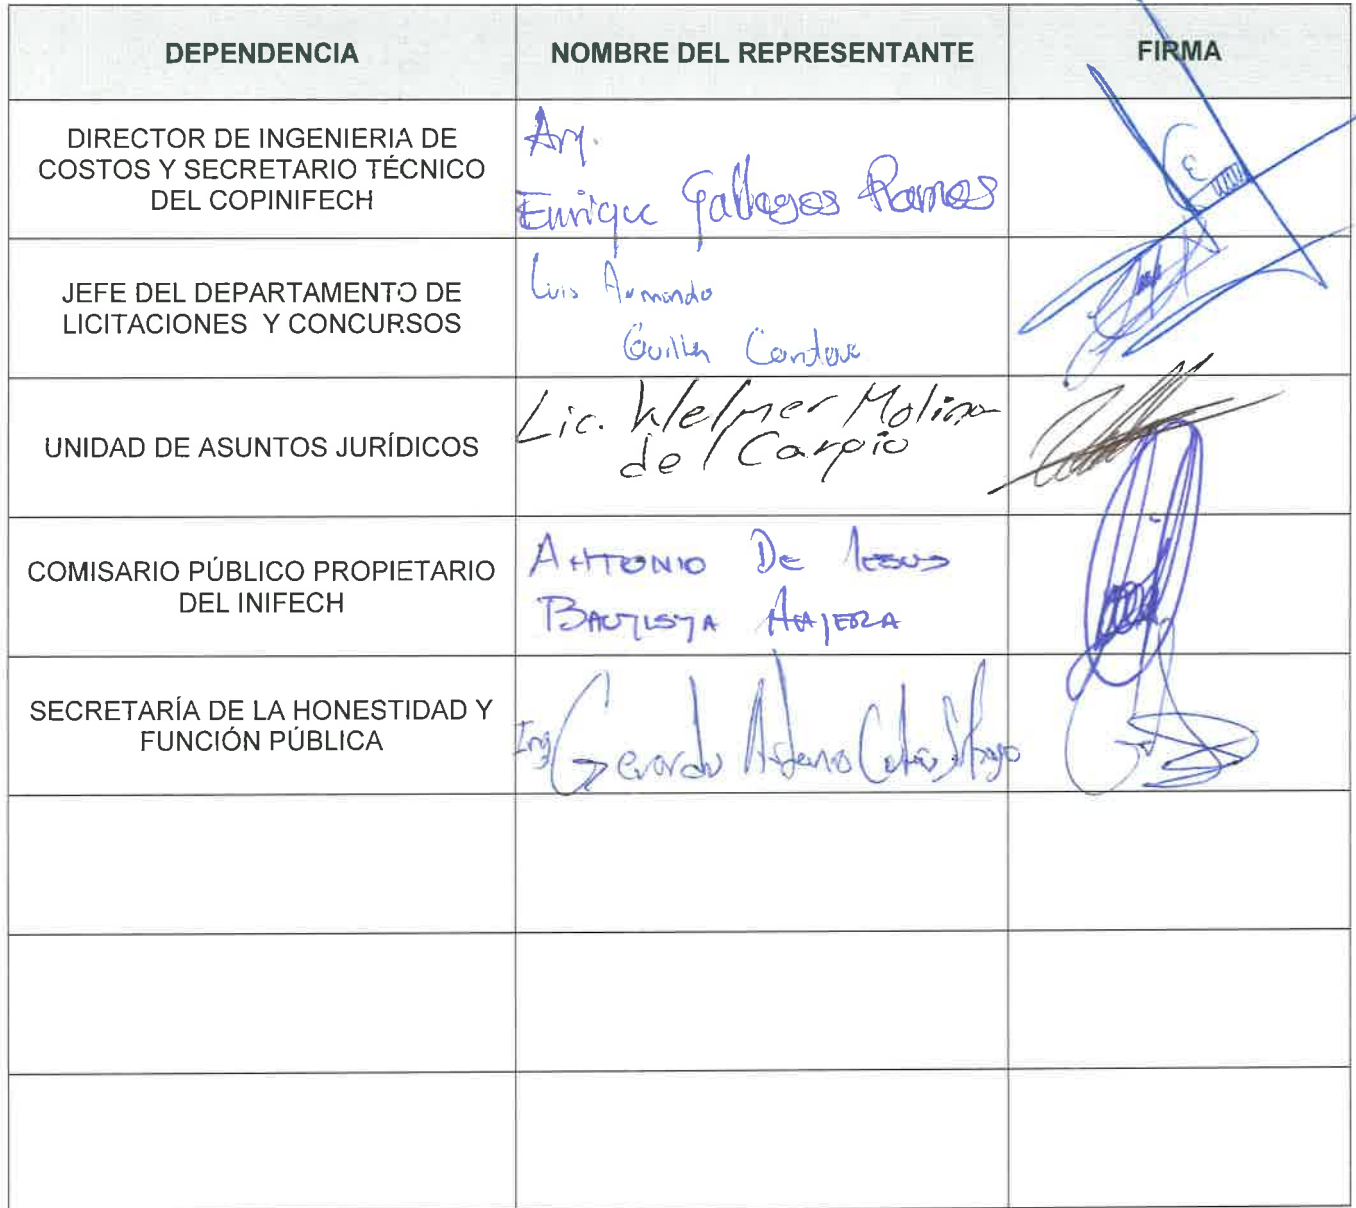 DEPENDENCIA
NOMBRE DEL REPRESENTANTE
FIRMA
DIRECTOR DE INGENIERIA DE
COSTOS Y SECRETARIO TÉCNICO
DEL COPINIFECH
Arq.
Enrique Gallegos Ramos
JEFE DEL DEPARTAMENTO DE
LICITACIONES Y CONCURSOS
Luis Armando
Guillen
UNIDAD DE ASUNTOS JURÍDICOS
Lic. Welmer Molina
del Carpio
COMISARIO PÚBLICO PROPIETARIO
DEL INIFECH
ANTONIO DE JESUS
BAUTISTA
SECRETARÍA DE LA HONESTIDAD Y
FUNCIÓN PÚBLICA
Ing Gerardo